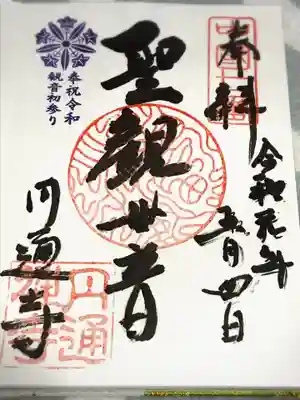 奉拝
令和元年
五月四日
聖観世音
奉祝令和
観音初参り
円通寺
円通